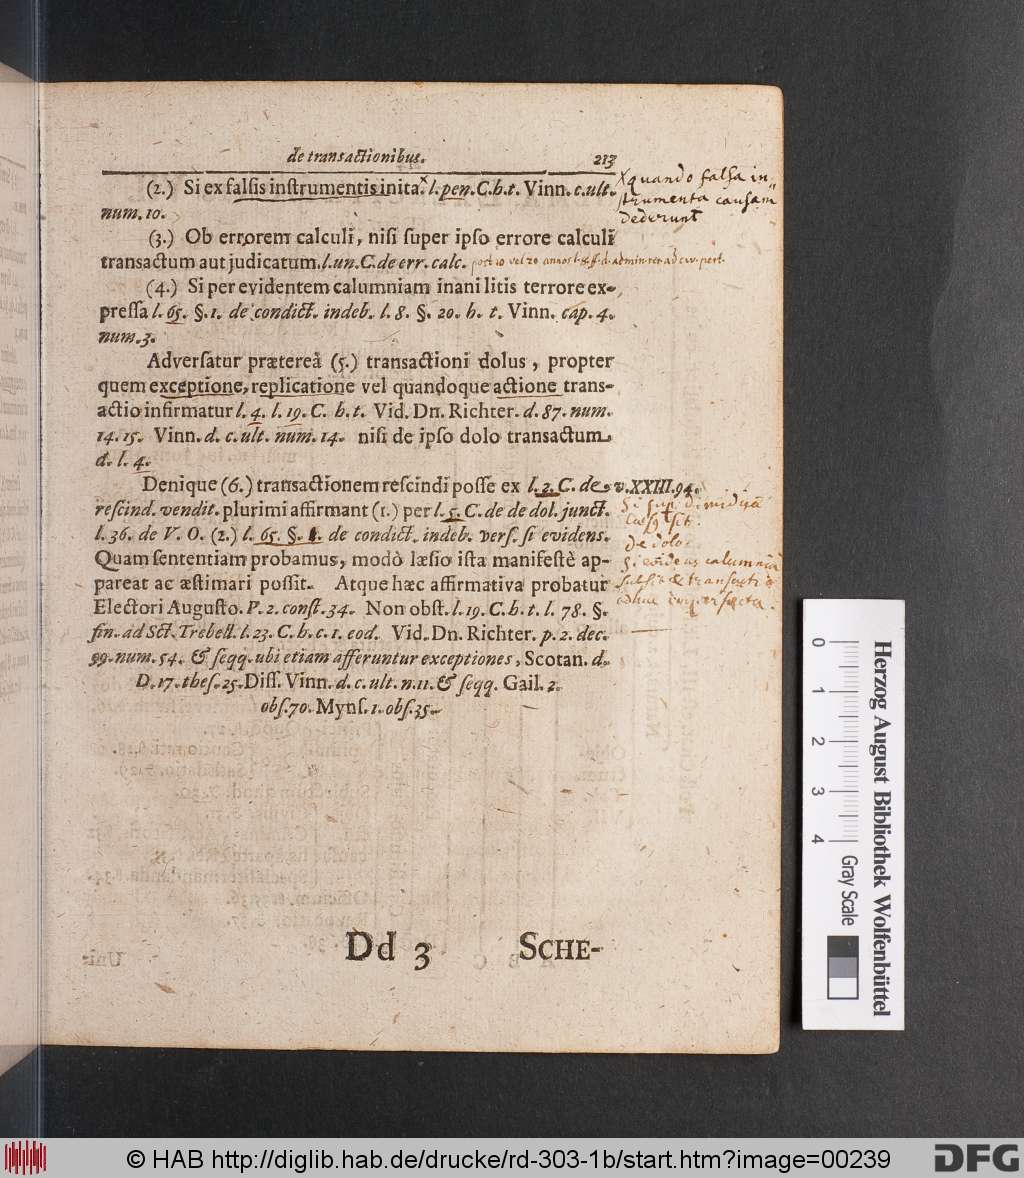 de transactionibus. 213
(2.) Si ex falsis instrumentis inita. x l. pen. C. h. t. Vinn. c. ult.
num. 10.
x quando falsa in=
strumenta causam
dederunt
(3.) Ob errorem calculi, nisi super ipso errore calculi
transactum aut judicatum. l. un. C. de err. calc.
(4.) Si per evidentem calumniam inani litis terrore ex-
pressa l. 65. §. 1. de condict. indeb. l. 8. §. 20. h. t. Vinn. cap. 4.
num. 3.
Adversatur præterea (5.) transactioni dolus, propter
quem exceptione, replicatione vel quandoque actione trans-
actio infirmatur l. 4. l. 19. C. h. t. Vid. Dn. Richter. d. 87. num.
14. 15. Vinn. d. c. ult. num. 14. nisi de ipso dolo transactum.
d. l. 4.
Denique (6.) transactionem rescindi posse ex l. 2. C. de v. XXIII. 94.
rescind. vendit. plurimi affirmant (1.) per l. 5. C. de de dol. junct.
l. 36. de V. O. (2.) l. 65. §. 1. de condict. indeb. vers. si evidens.
Quam sententiam probamus, modò læsio ista manifestè ap-
pareat ac æstimari possit. Atque hæc affirmativa probatur
Electori Augusto. P. 2. const. 34. Non obst. l. 19. C. h. t. l. 78. §.
fin. ad Sct. Trebell. l. 23. C. h. c. 1. eod. Vid. Dn. Richter. p. 2. dec.
99. num. 54. & seqq. ubi etiam afferuntur exceptiones, Scotan. d.
D. 17. thes. 25. Diss. Vinn. d. c. ult. n. 11. & seqq. Gail. 2.
obs. 70. Myns. 1. obs. 35.
de dolo.
si evidens calumnia
Dd 3 SCHE-
0 1 2 3 4
Gray Scale
Herzog August Bibliothek Wolfenbüttel
© HAB http://diglib.hab.de/drucke/rd-303-1b/start.htm?image=00239
DFG